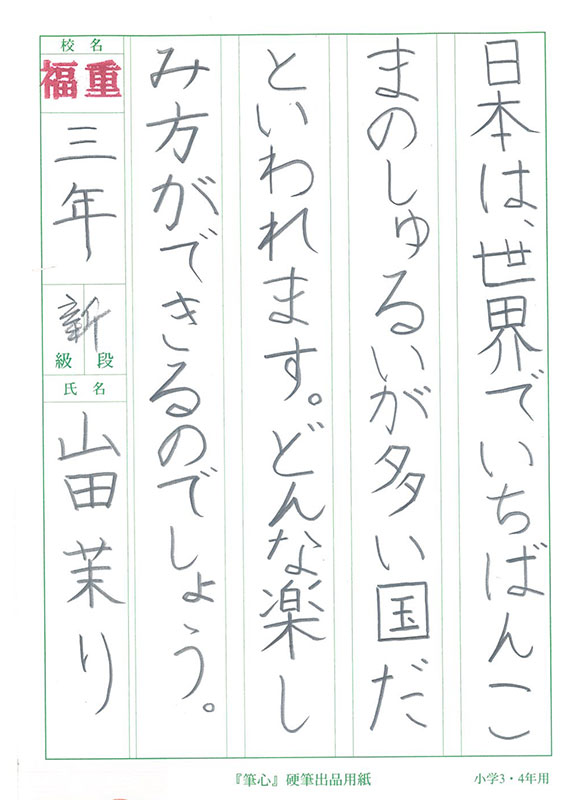 日本は、世界でいちばんこ
まのしゅるいが多い国だ
といわれます。どんな楽し
み方ができるのでしょう。
校名
福重
三年
新
級段
氏名
山田茉り
『筆心』硬筆出品用紙
小学3・4年用